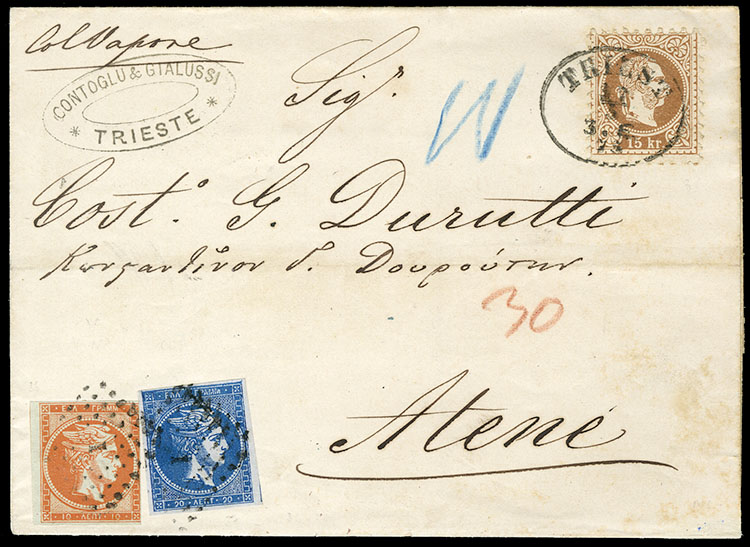 Col Vapore
CONTOGLU & GIALUSSI
* TRIESTE *
Sigr.
TRIEST
15 kr.
Costo. G. Durutti
Κωνσταντίνον Γ. Δουρούτην.
30
Atene
ΕΛΛ. ΓΡΑΜΜ.
10 ΛΕΠΤ. 10
ΕΛΛ. ΓΡΑΜΜ.
20 ΛΕΠΤ. 20